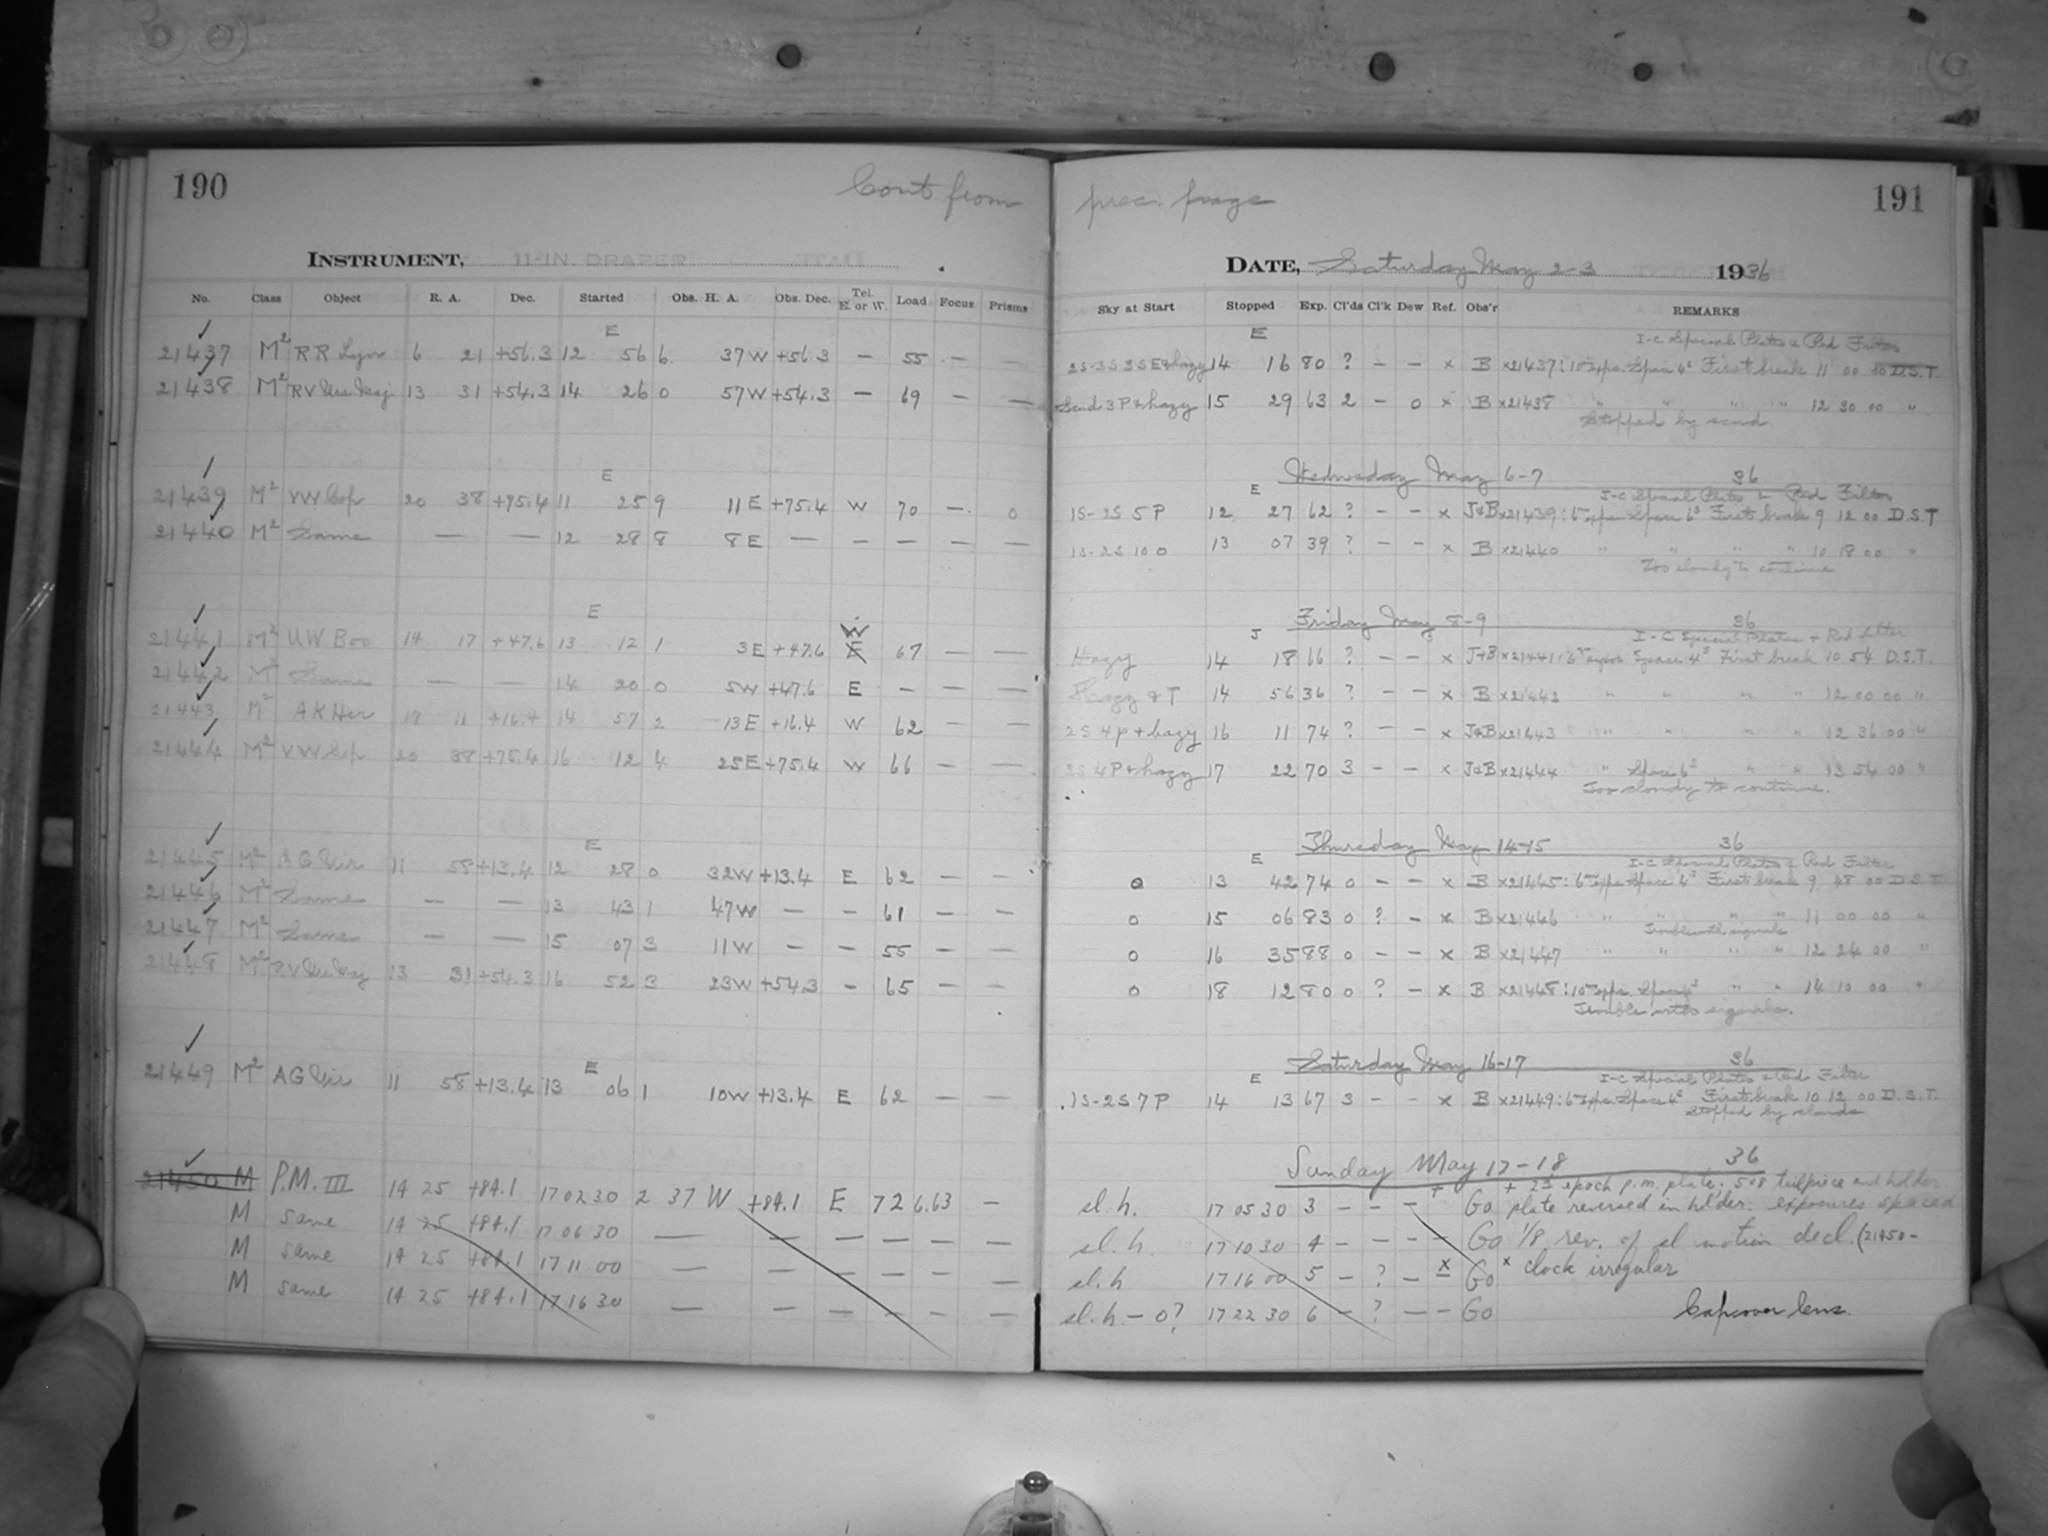 190
Cont from
prec. page
191
INSTRUMENT, 11-IN. DRAPER
DATE, Saturday May 2-3 1936
No. Class Object R. A. Dec. Started Obs. H. A. Obs. Dec. Tel. E. or W. Load Focus Prisms
Sky at Start Stopped Exp. Cl'ds Cl'k Dew Ref. Obs'r REMARKS
E
E I-C Special Plates & Red Filter
21437 M² RR Lyn 6 21 +56.3 12 56 6 37W +56.3 — 55 — —
14 16 80 ? — — x B x21437: 10 expo. Space 4ˢ First break 11 00 00 D.S.T.
21438 M² RV Urs Maj 13 31 +54.3 14 26 0 57W +54.3 — 69 — —
Scud 3P & hazy 15 29 63 2 — 0 x B x21438 " " " " 12 30 00 "
Stopped by scud.
Wednesday May 6-7 36
E
E I-C Special Plates & Red Filter
21439 M² VW Cep 20 38 +75.4 11 25 9 11E +75.4 W 70 — 0
1S-2S 5P 12 27 62 ? — — x J&B x21439: 6 expo. Space 6ˢ First break 9 12 00 D.S.T
21440 M² Same — — 12 28 8 8E — — — — —
1S-2S 10 0 13 07 39 ? — — x B x21440 " " " " 10 18 00 "
Too cloudy to continue
Friday May 8-9 36
E
J I-C Special Plates + Red filter
21441 M² UW Boo 14 17 +47.6 13 12 1 3E +47.6 W E 67 — —
Hazy 14 18 66 ? — — x J+B x21441: 6 expos Space 4ˢ First break 10 54 D.S.T.
21442 M² Same — — 14 20 0 5W +47.6 E — — —
Hazy & T 14 56 36 ? — — x B x21442 " " " " 12 00 00 "
21443 M² AK Her 17 11 +16.4 14 57 2 13E +16.4 W 62 — —
2S 4P + hazy 16 11 74 ? — — x J&B x21443 " " " " 12 36 00 "
21444 M² VW Cep 20 38 +75.4 16 12 4 25E +75.4 W 66 — —
2S 4P + hazy 17 22 70 3 — — x J&B x21444 " Space 6ˢ " " 13 54 00 "
Too cloudy to continue.
Thursday May 14-15 36
E
E I-C Special Plates & Red Filter
21445 M² AG Vir 11 58 +13.4 12 28 0 32W +13.4 E 62 — —
0 13 42 74 0 — — x B x21445: 6 expo Space 4ˢ First break 9 48 00 D.S.T.
21446 M² Same — — 13 43 1 47W — — 61 — —
0 15 06 83 0 ? — x B x21446 " " " " 11 00 00 "
Trouble with signals
21447 M² Same — — 15 07 3 11W — — 55 — —
0 16 35 88 0 — — x B x21447 " " " " 12 24 00 "
21448 M² RV Urs Maj 13 31 +54.3 16 52 3 23W +54.3 — 65 — —
0 18 12 80 0 ? — x B x21448: 10 expo. Space 4ˢ " " 14 10 00 "
Trouble with signals.
Saturday May 16-17 36
E
E I-C Special Plates & Red Filter
21449 M² AG Vir 11 58 +13.4 13 06 1 10W +13.4 E 62 — —
1S-2S 7P 14 13 67 3 — — x B x21449: 6 expo Space 4ˢ First break 10 12 00 D.S.T.
Stopped by clouds
Sunday May 17-18 36
+ 2d epoch p.m. plate. 508 tailpiece and holder
21450 M P.M. III 14 25 +84.1 17 02 30 2 37 W +84.1 E 72 6.63 —
sl. h. 17 05 30 3 — — — + Go plate reversed in holder: exposures spaced
M same 14 25 +84.1 17 06 30 — — — — — —
sl. h. 17 10 30 4 — — — — Go 1/8 rev. of sl motion decl. (21450-
M same 14 25 +84.1 17 11 00 — — — — — —
sl. h 17 16 00 5 — ? — x Go x clock irregular
M same 14 25 +84.1 17 16 30 — — — — — —
sl. h — 0? 17 22 30 6 — ? — — Go Cap over lens.